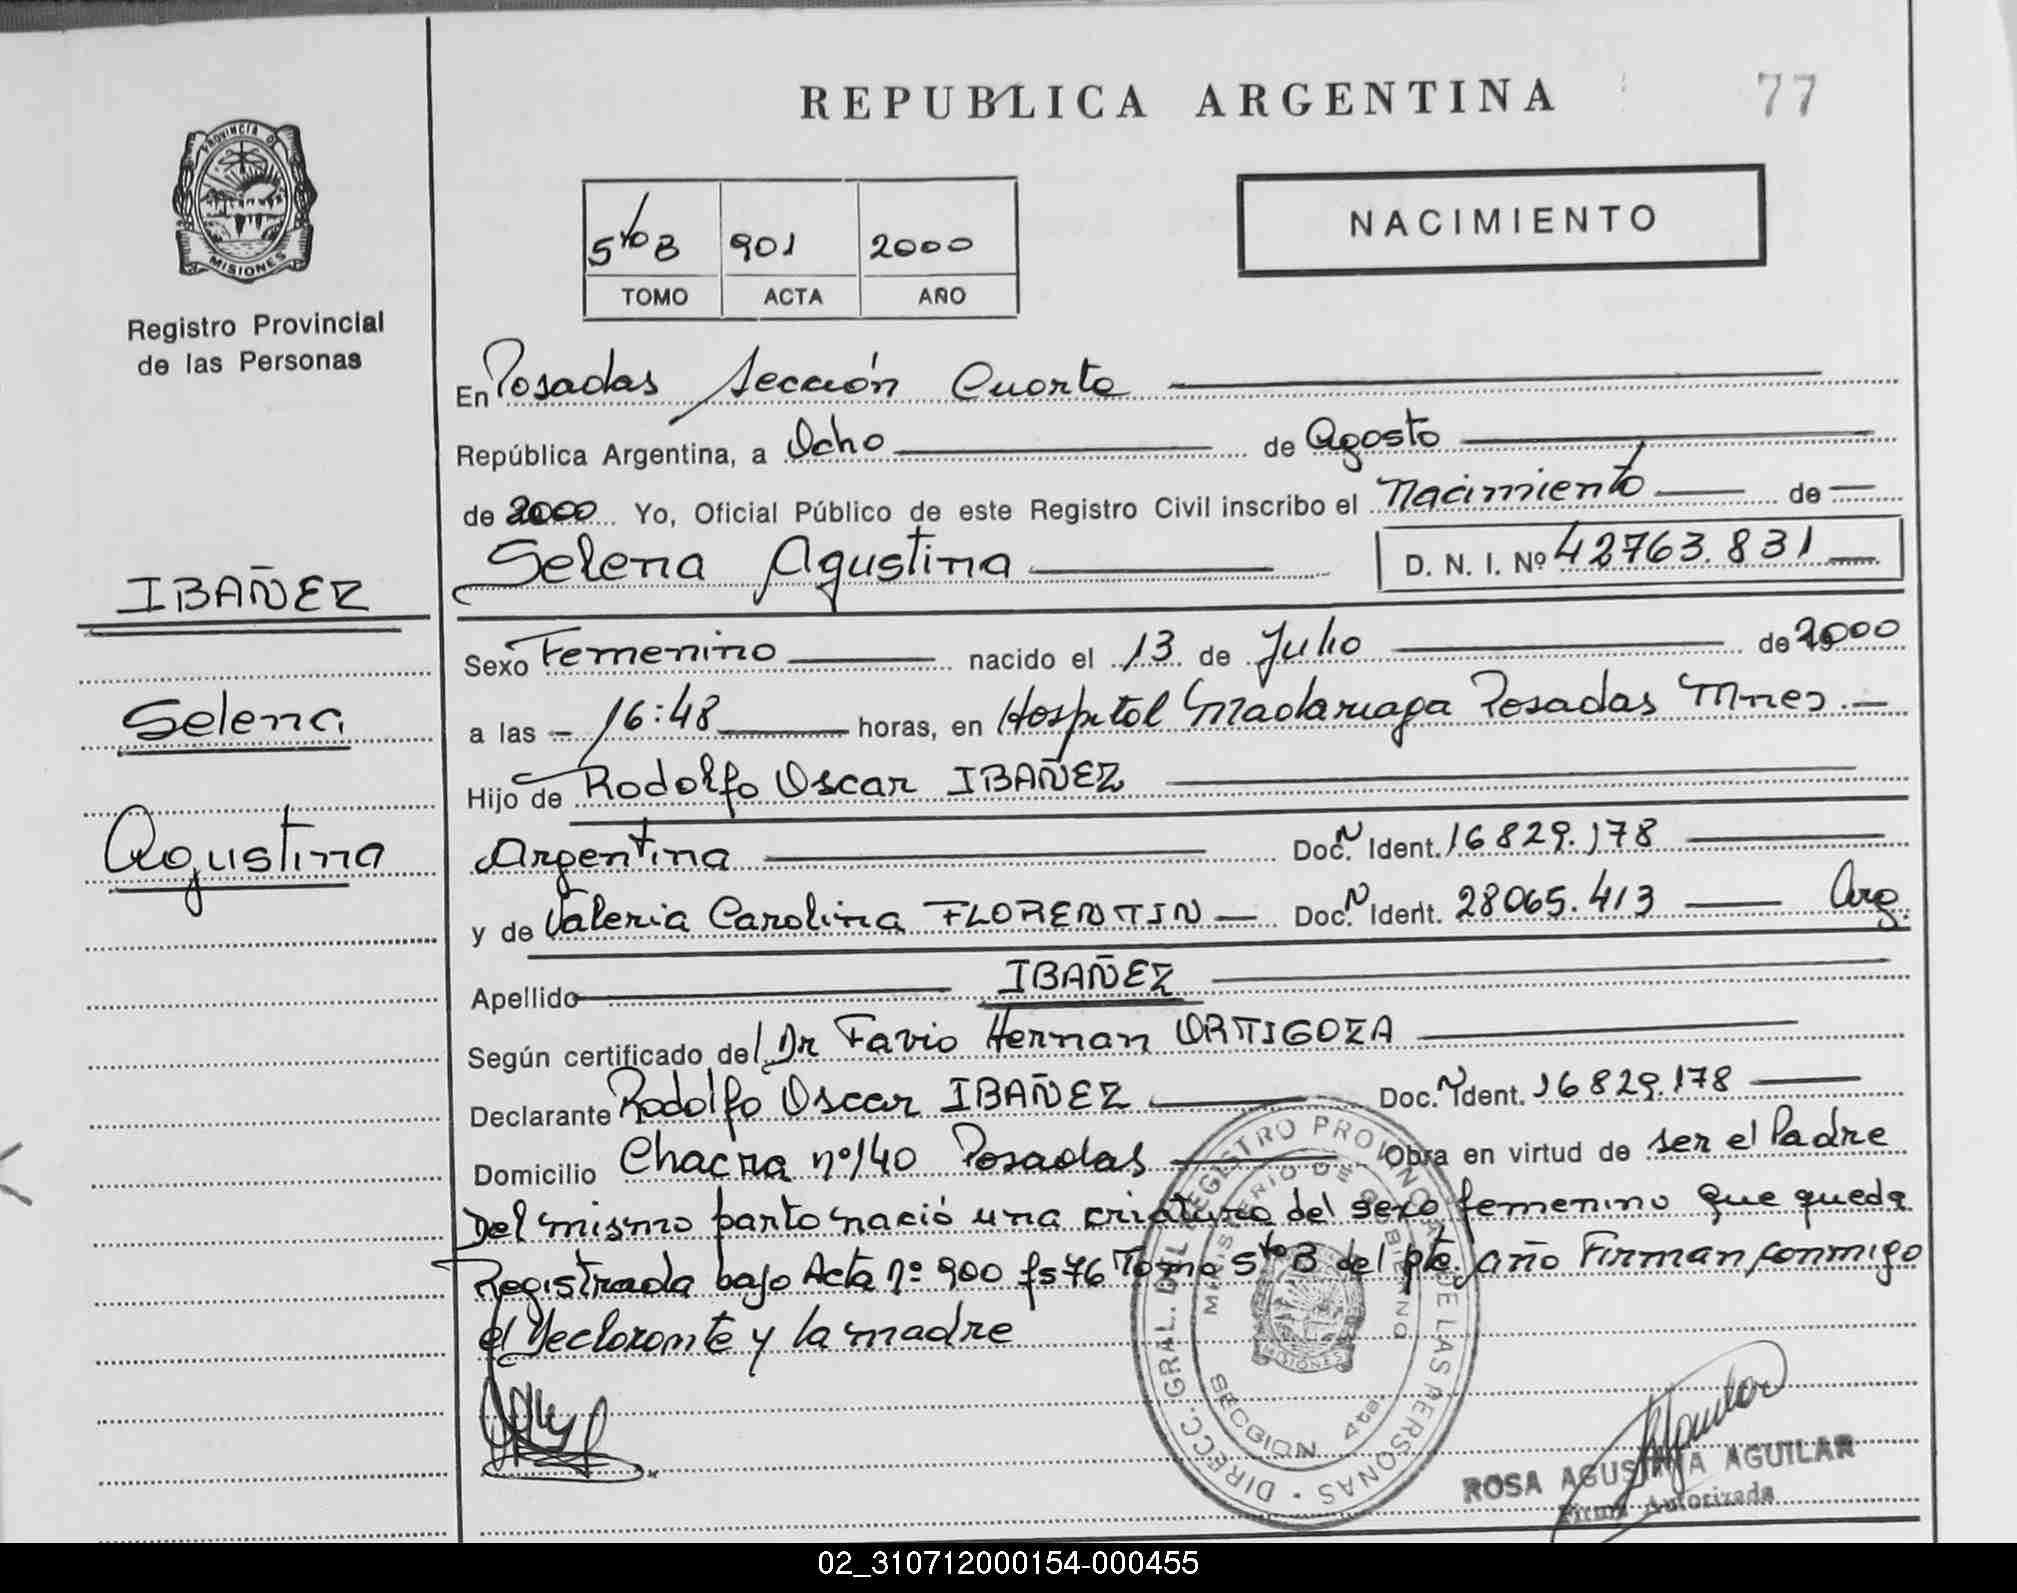 REPUBLICA ARGENTINA
77
PROVINCIA DE
MISIONES
Registro Provincial
de las Personas
5to B 901 2000
TOMO ACTA AÑO
NACIMIENTO
En Posadas Sección Cuarta
República Argentina, a Ocho de Agosto
de 2000 Yo, Oficial Público de este Registro Civil inscribo el Nacimiento de
Selena Agustina D. N. I. Nº 42763.831
IBAÑEZ
Selena
Agustina
Sexo Femenino nacido el 13 de Julio de 2000
a las 16:48 horas, en Hospital Madariaga Posadas Mnes
Hijo de Rodolfo Oscar IBAÑEZ
Argentina Doc. N Ident. 16829.178
y de Valeria Carolina FLORENTIN Doc. N Ident. 28065.413 Arg.
Apellido IBAÑEZ
Según certificado del Dr Favio Hernan ORTIGOZA
Declarante Rodolfo Oscar IBAÑEZ Doc. N Ident. 16829.178
Domicilio Chacra nº 140 Posadas Obra en virtud de ser el Padre
Del mismo parto nació una criatura del sexo femenino que queda
Registrada bajo Acta nº 900 fs 76 Tomo 5to B del pte. año Firman conmigo
el Declarante y la madre
DIRECC. GRAL. DEL REGISTRO PROVINCIAL DE LAS PERSONAS
MINISTERIO DE GOBIERNO
MISIONES
SECCION 4ta.
ROSA AGUSTINA AGUILAR
Firma Autorizada
02_310712000154-000455